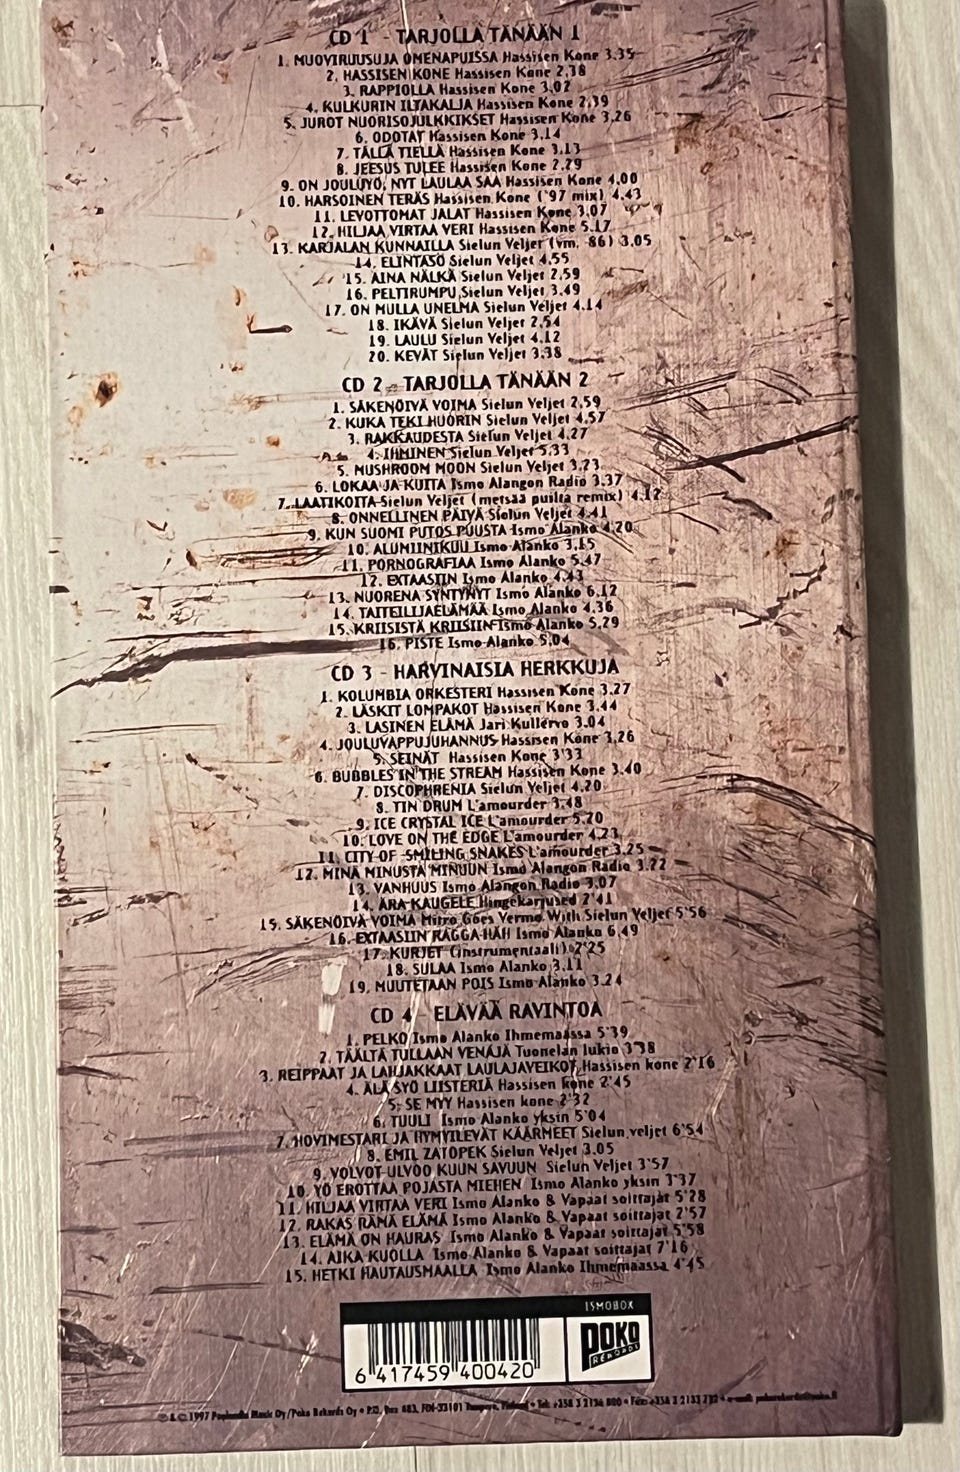 CD 1 - TARJOLLA TÄNÄÄN 1
1. MUOVIRUUSUJA OMENAPUISSA Hassisen Kone 3.35
2. HASSISEN KONE Hassisen Kone 2.38
3. RAPPIOLLA Hassisen Kone 3.02
4. KULKURIN ILTAKALJA Hassisen Kone 2.39
5. JUROT NUORISOJULKKIKSET Hassisen Kone 3.26
6. ODOTAT Hassisen Kone 3.14
7. TÄLLÄ TIELLÄ Hassisen Kone 3.13
8. JEESUS TULEE Hassisen Kone 2.29
9. ON JOULUYÖ, NYT LAULAA SAA Hassisen Kone 4.00
10. HARSOINEN TERÄS Hassisen Kone ('97 mix) 4.43
11. LEVOTTOMAT JALAT Hassisen Kone 3.07
12. HILJAA VIRTAA VERI Hassisen Kone 5.17
13. KARJALAN KUNNAILLA Sielun Veljet (vm. -86) 3.05
14. ELINTASO Sielun Veljet 4.55
15. AINA NÄLKÄ Sielun Veljet 2.59
16. PELTIRUMPU Sielun Veljet 3.49
17. ON MULLA UNELMA Sielun Veljet 4.14
18. IKÄVÄ Sielun Veljet 2.54
19. LAULU Sielun Veljet 4.12
20. KEVÄT Sielun Veljet 3.38
CD 2 - TARJOLLA TÄNÄÄN 2
1. SÄKENÖIVÄ VOIMA Sielun Veljet 2.59
2. KUKA TEKI HUORIN Sielun Veljet 4.57
3. RAKKAUDESTA Sielun Veljet 4.27
4. IHMINEN Sielun Veljet 5.33
5. MUSHROOM MOON Sielun Veljet 3.23
6. LOKAA JA KUITA Ismo Alangon Radio 3.37
7. LAATIKOITA Sielun Veljet (metsää puilta remix) 4.12
8. ONNELLINEN PÄIVÄ Sielun Veljet 4.41
9. KUN SUOMI PUTOS PUUSTA Ismo Alanko 4.20
10. ALUMIINIKUU Ismo Alanko 3.15
11. PORNOGRAFIAA Ismo Alanko 5.47
12. EXTAASIIN Ismo Alanko 4.43
13. NUORENA SYNTYNYT Ismo Alanko 6.12
14. TAITEILIJAELÄMÄÄ Ismo Alanko 4.36
15. KRIISISTÄ KRIISIIN Ismo Alanko 5.29
16. PISTE Ismo Alanko 5.04
CD 3 - HARVINAISIA HERKKUJA
1. KOLUMBIA ORKESTERI Hassisen Kone 3.27
2. LÄSKIT LOMPAKOT Hassisen Kone 3.44
3. LASINEN ELÄMÄ Jari Kullervo 3.04
4. JOULUVAPPUJUHANNUS Hassisen Kone 3.26
5. SEINÄT Hassisen Kone 3'33
6. BUBBLES IN THE STREAM Hassisen Kone 3.40
7. DISCOPHRENIA Sielun Veljet 4.20
8. TIN DRUM L'amourder 3.48
9. ICE CRYSTAL ICE L'amourder 5.20
10. LOVE ON THE EDGE L'amourder 4.23
11. CITY OF SMILING SNAKES L'amourder 3.25
12. MINÄ MINUSTA MINUUN Ismo Alangon Radio 3.22
13. VANHUUS Ismo Alangon Radio 3.07
14. ÄRA KAUGELE Hingekarjused 2'41
15. SÄKENÖIVÄ VOIMA Mitro Goes Vermo With Sielun Veljet 5'56
16. EXTAASIIN RAGGA-HÄH Ismo Alanko 6.49
17. KURJET (instrumentaali) 2'25
18. SULAA Ismo Alanko 3.11
19. MUUTETAAN POIS Ismo Alanko 3.24
CD 4 - ELÄVÄÄ RAVINTOA
1. PELKO Ismo Alanko Ihmemaassa 5'39
2. TÄÄLTÄ TULLAAN VENÄJÄ Tuonelan lukio 3'38
3. REIPPAAT JA LAHJAKKAAT LAULAJAVEIKOT Hassisen kone 2'16
4. ÄLÄ SYÖ LIISTERIÄ Hassisen kone 2'45
5. SE MYY Hassisen kone 2'32
6. TUULI Ismo Alanko yksin 5'04
7. HOVIMESTARI JA HYMYILEVÄT KÄÄRMEET Sielun veljet 6'54
8. EMIL ZATOPEK Sielun Veljet 3.05
9. VOLVOT ULVOO KUUN SAVUUN Sielun Veljet 3'57
10. YÖ EROTTAA POJASTA MIEHEN Ismo Alanko yksin 3'37
11. HILJAA VIRTAA VERI Ismo Alanko & Vapaat soittajat 5'28
12. RAKAS RÄMÄ ELÄMÄ Ismo Alanko & Vapaat soittajat 2'57
13. ELÄMÄ ON HAURAS Ismo Alanko & Vapaat soittajat 5'58
14. AIKA KUOLLA Ismo Alanko & Vapaat soittajat 7'16
15. HETKI HAUTAUSMAALLA Ismo Alanko Ihmemaassa 4'45
ISMOBOX
POKO
REKORDS
6 417459 400420
℗ & © 1997 Poplandia Music Oy/Poko Rekords Oy • P.O. Box 483, FIN-33101 Tampere, Finland • Tel: +358 3 2136 800 • Fax: +358 3 2133 732 • e-mail: